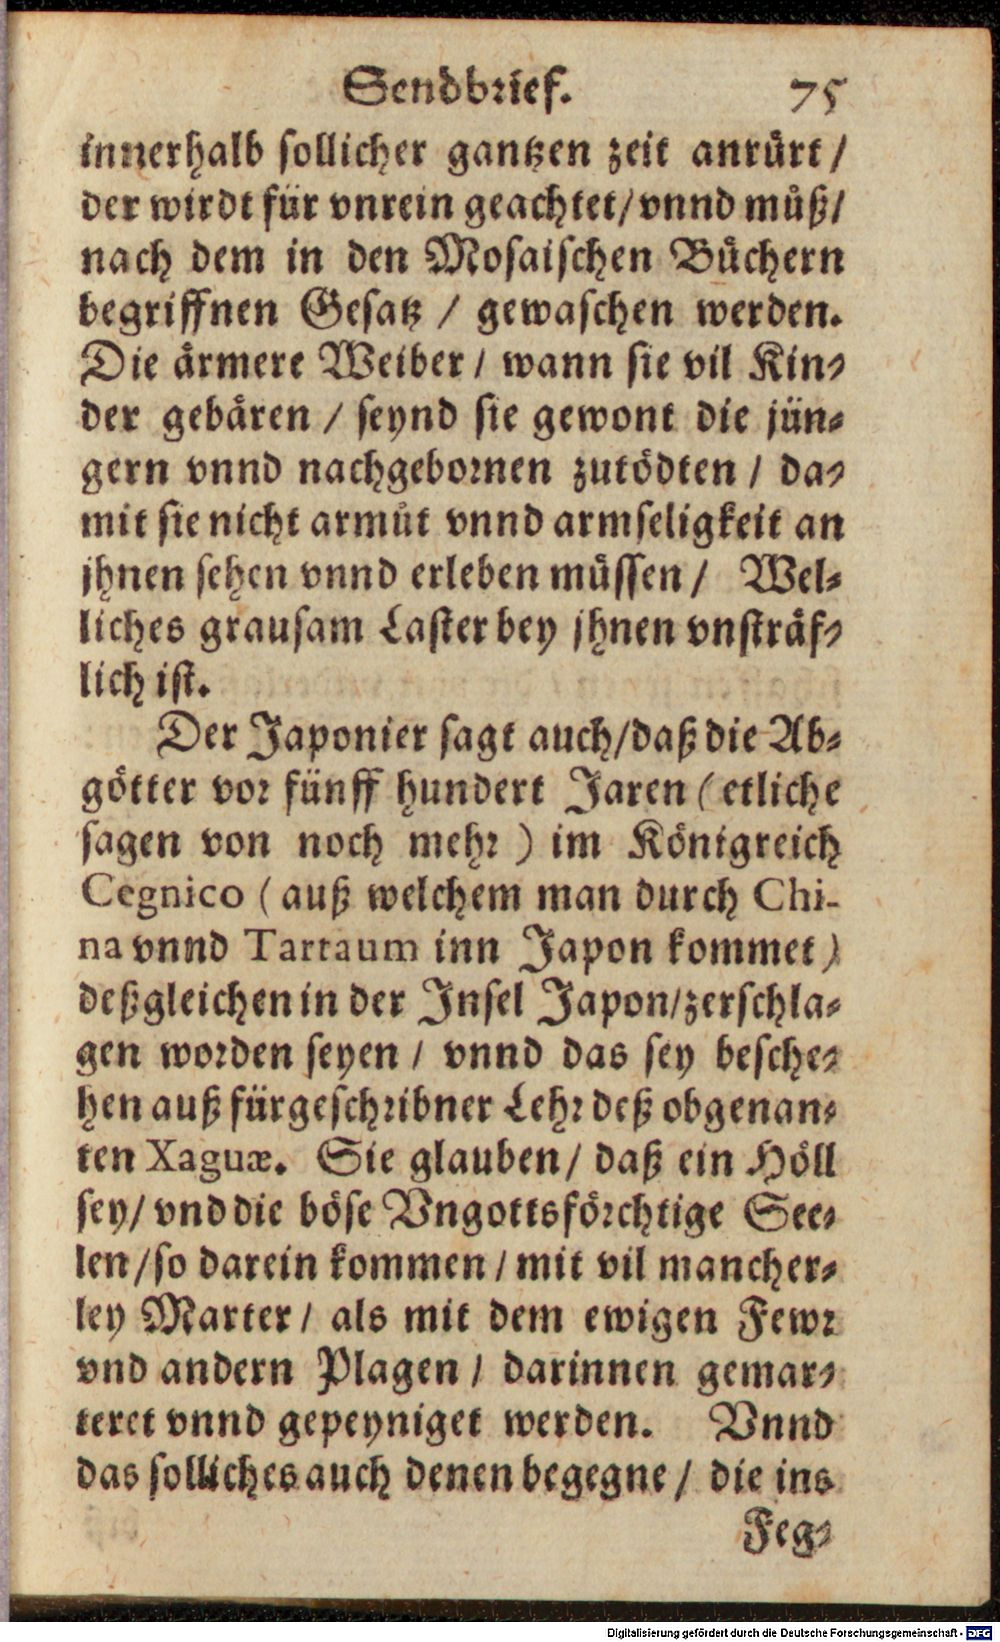 Sendbrief. 75
innerhalb sollicher gantzen zeit anrůrt /
der wirdt für vnrein geachtet / vnnd můß /
nach dem in den Mosaischen Bůchern
begriffnen Gesatz / gewaschen werden.
Die ärmere Weiber / wann sie vil Kin-
der gebären / seynd sie gewont die jün-
gern vnnd nachgebornen zutödten / da-
mit sie nicht armůt vnnd armseligkeit an
jhnen sehen vnnd erleben müssen / Wel-
liches grausam Laster bey jhnen vnsträf-
lich ist.
Der Japonier sagt auch / daß die Ab-
götter vor fünff hundert Jaren ( etliche
sagen von noch mehr ) im Königreich
Cegnico ( auß welchem man durch Chi-
na vnnd Tartaum inn Japon kommet )
deßgleichen in der Insel Japon / zerschla-
gen worden seyen / vnnd das sey besche-
hen auß fürgeschribner Lehr deß obgenan-
ten Xaguæ. Sie glauben / daß ein Höll
sey / vnd die böse Vngottsförchtige See-
len / so darein kommen / mit vil mancher-
ley Marter / als mit dem ewigen Fewr
vnd andern Plagen / darinnen gemar-
teret vnnd gepeyniget werden. Vnnd
das solliches auch denen begegne / die ins
Feg-
Digitalisierung gefördert durch die Deutsche Forschungsgemeinschaft - DFG